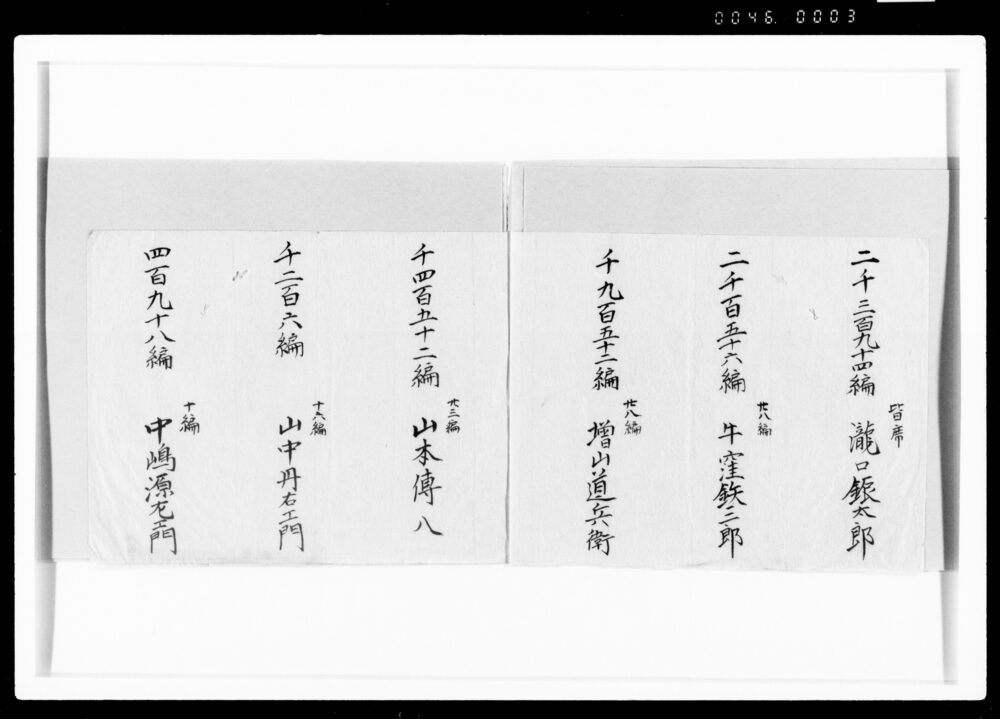 0046. 0003
二千三百九十四編
皆席
瀧口銀太郎
二千百五十六編
廿八編
牛窪鉄三郎
千九百五十二編
廿八編
増山道兵衛
千四百五十二編
廿三編
山本傳八
千二百六編
十六編
山中丹右エ門
四百九十八編
十編
中嶋源左エ門